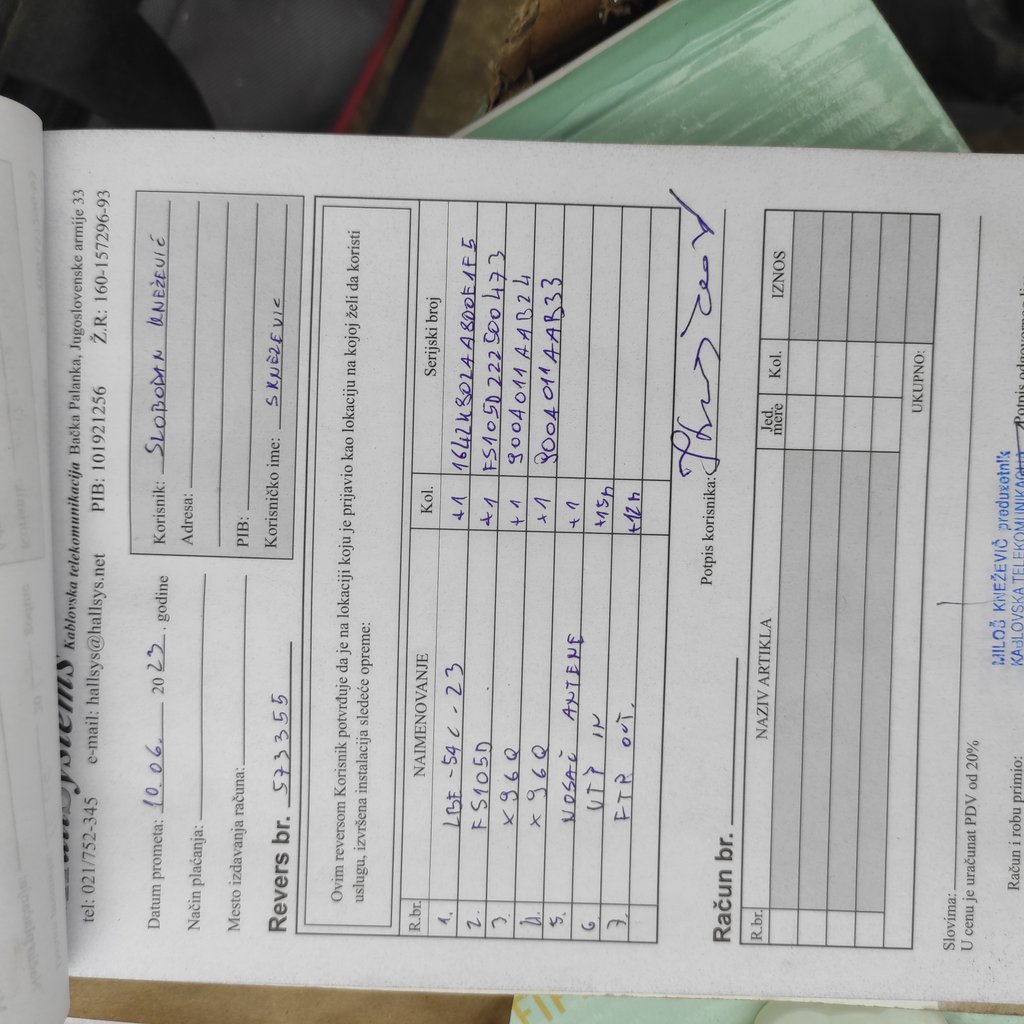 Kablovska telekomunikacija Bačka Palanka, Jugoslovenske armije 33
tel: 021/752-345 e-mail: hallsys@hallsys.net PIB: 101921256 Ž.R: 160-157296-93
Datum prometa: 10.06. 2023. godine
Način plaćanja:
Mesto izdavanja računa:
Revers br. 573355
Korisnik: SLOBODAN KNEŽEVIĆ
Adresa:
PIB:
Korisničko ime: SKNEZEVIC
Ovim reversom Korisnik potvrđuje da je na lokaciji koju je prijavio kao lokaciju na kojoj želi da koristi
uslugu, izvršena instalacija sledeće opreme:
R.br. NAIMENOVANJE Kol. Serijski broj
1. LBE-54C-23 +1
2. FS105D +1 FS105D222500473
3. X96Q +1 9004011AAB24
4. X96Q +1 9004011AAB33
5. NOSAČ ANTENE +1
6 UTP IN +15m
7. FTP OUT. +12m
Potpis korisnika:
Račun br.
R.br. NAZIV ARTIKLA Jed. mere Kol. IZNOS
UKUPNO:
Slovima:
U cenu je uračunat PDV od 20%
Račun i robu primio:
MILOŠ KNEŽEVIĆ preduzetnik
KABLOVSKA TELEKOMUNIKACIJA